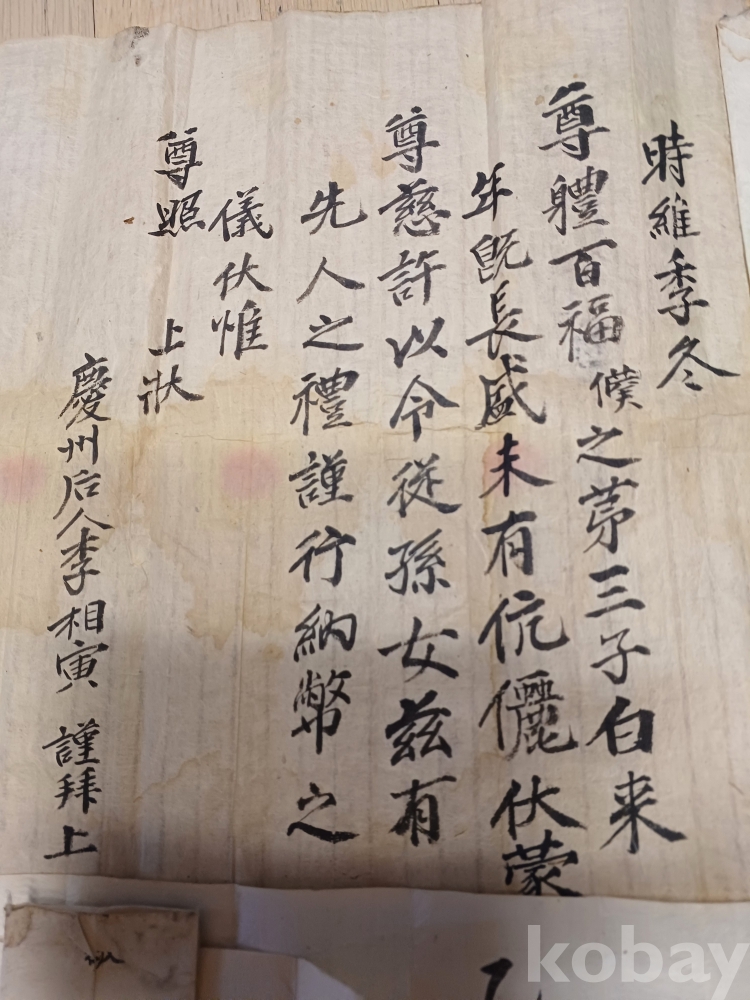 時維季冬
尊軆百福 僕之苐三子白来
年旣長盛未有伉儷伏蒙
尊慈許以令從孫女兹有
先人之禮謹行納幣之
儀伏惟
尊照 上狀
慶州后人李相寅 謹拜上
kobay